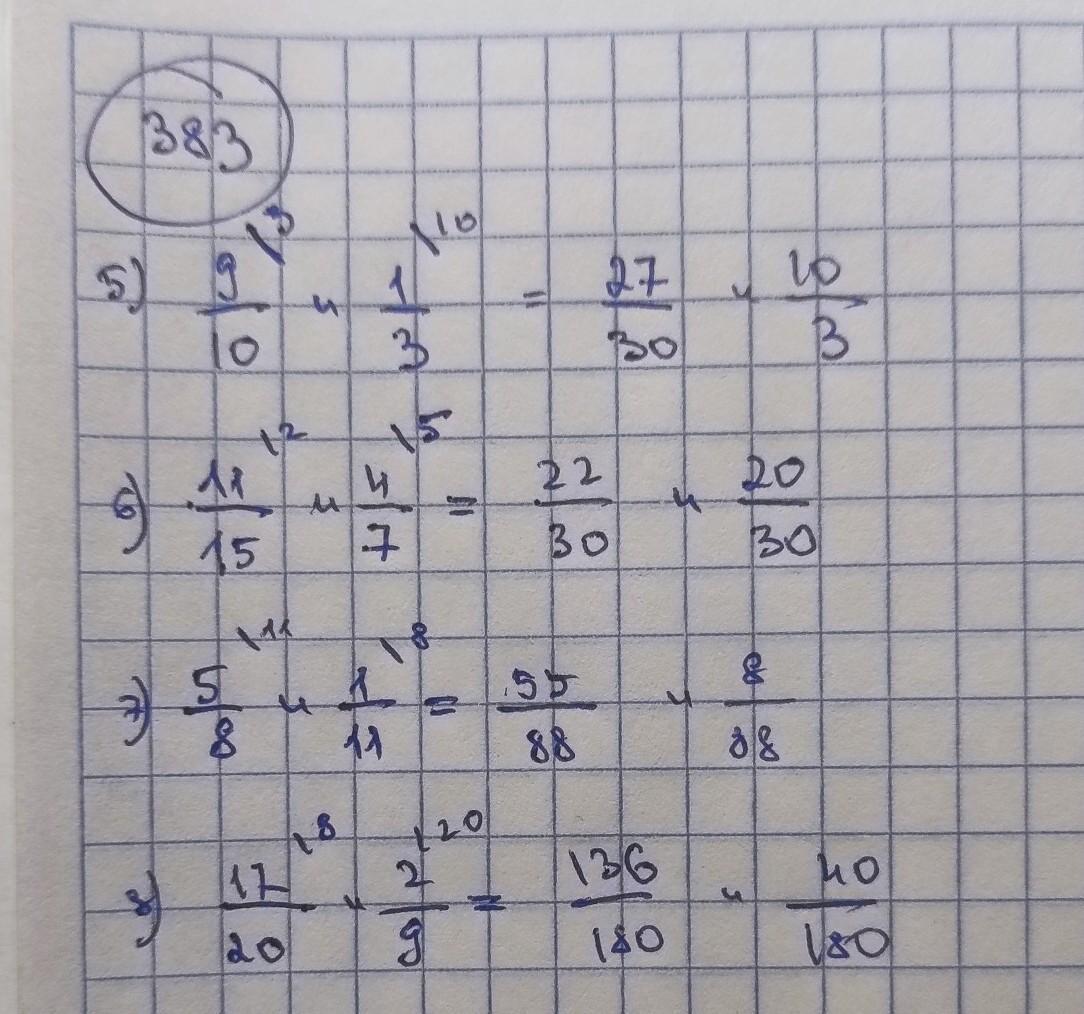 383
5) 9/10 \3 и 1/3 \10 = 27/30 и 10/3
6) 11/15 \2 и 4/7 \5 = 22/30 и 20/30
7) 5/8 \11 и 1/11 \8 = 55/88 и 8/88
8) 17/20 \8 и 2/9 \20 = 136/180 и 40/180